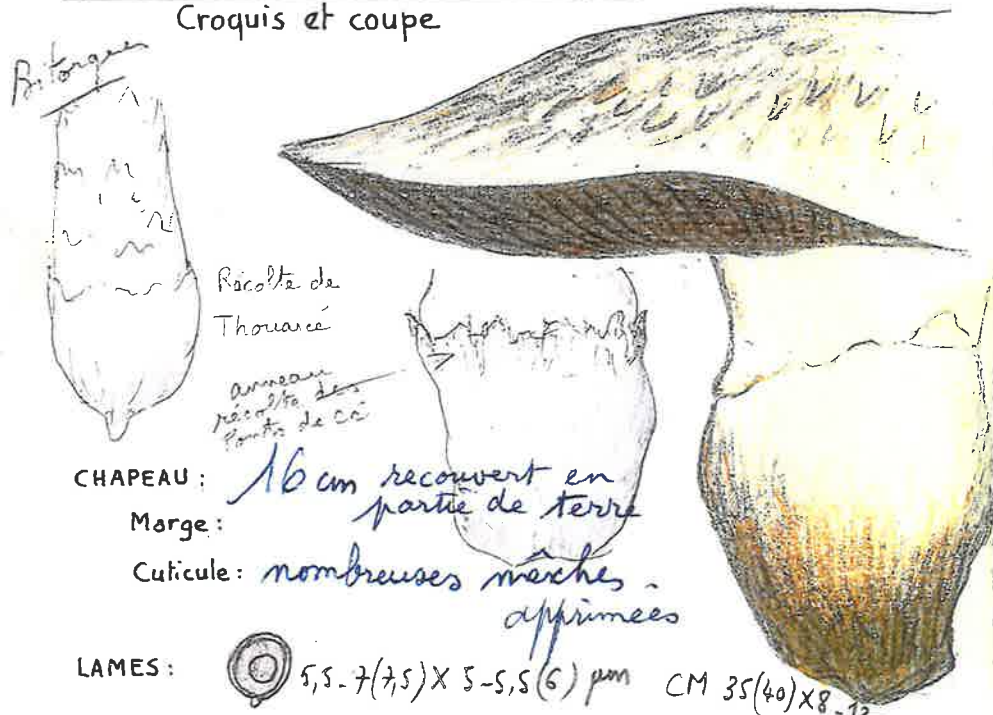 Croquis et coupe
Bitorques
Récolte de
Thouarcé
anneau
récolte des
Ponts de Cé
CHAPEAU : 16 cm recouvert en
partie de terre
Marge :
Cuticule : nombreuses mèches
apprimées
LAMES : 5,5-7(7,5) X 5-5,5(6) µm CM 35(40)X8-12